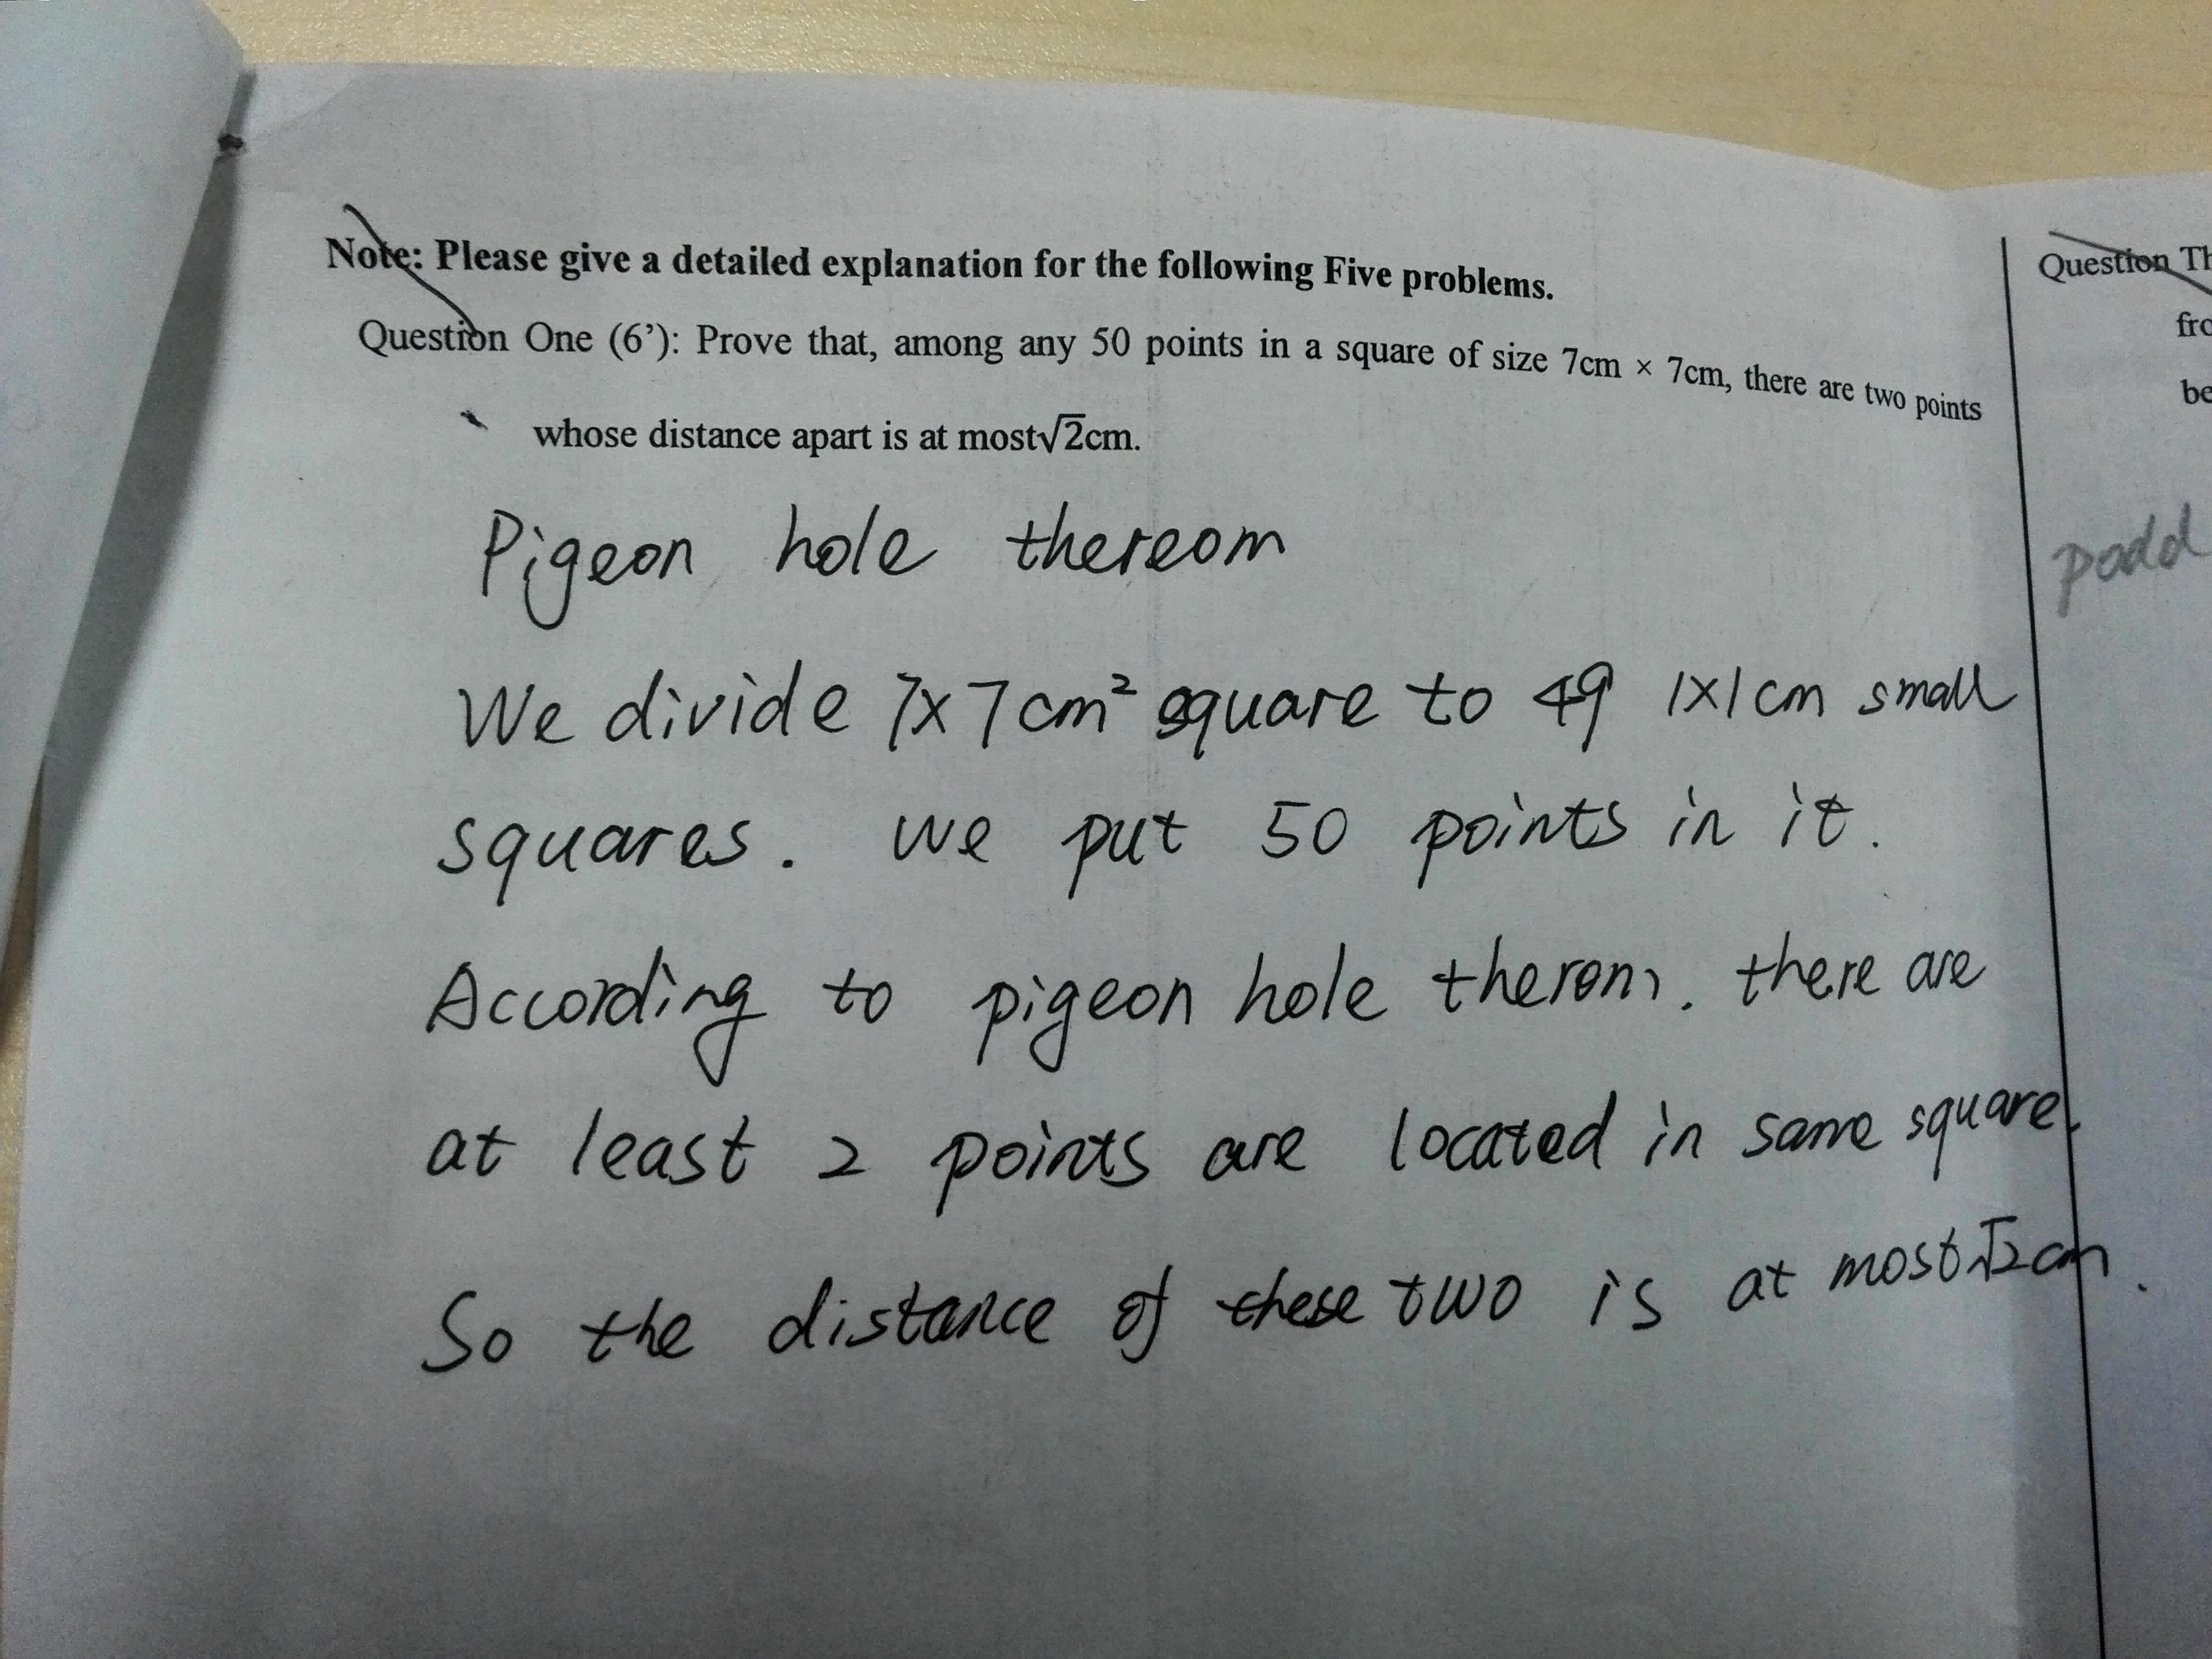 Note: Please give a detailed explanation for the following Five problems.
Question One (6’): Prove that, among any 50 points in a square of size 7cm × 7cm, there are two points
whose distance apart is at most√2cm.
Pigeon hole thereom
We divide 7x7cm² square to 49 1x1cm small
squares. we put 50 points in it.
According to pigeon hole therom. there are
at least 2 points are located in same square.
So the distance of these two is at most√2cm.
Question Th
fro
be
podd